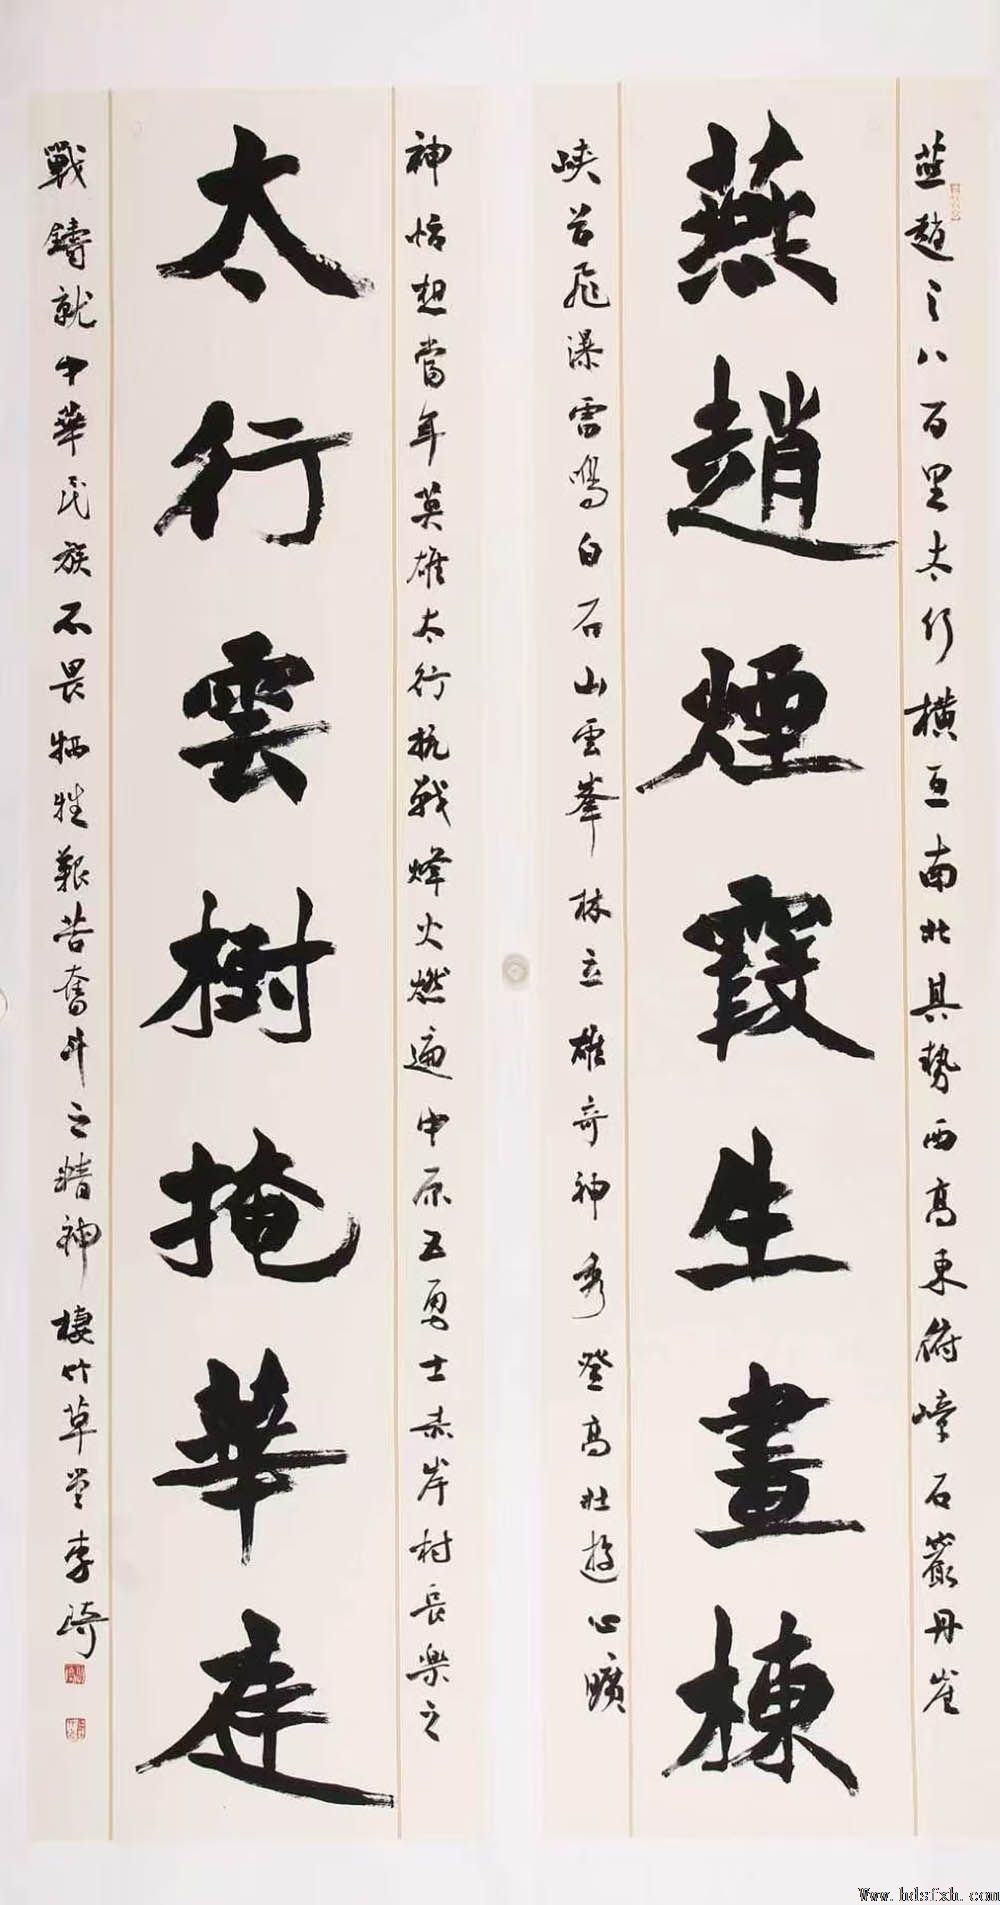 燕趙之八百里太行橫亘南北其勢西高東俯嶂石巖丹崖
燕趙煙霞生畫棟
峽谷飛瀑雷鳴白石山雲峯林立雄奇神秀登高壯遊心曠
神怡想當年英雄太行抗戰烽火燃遍中原五勇士赤岸村長樂之
太行雲樹掩華庭
戰鑄就中華民族不畏牺牲艱苦奮斗之精神棲竹草堂李琦
Www.hdsfxh.com